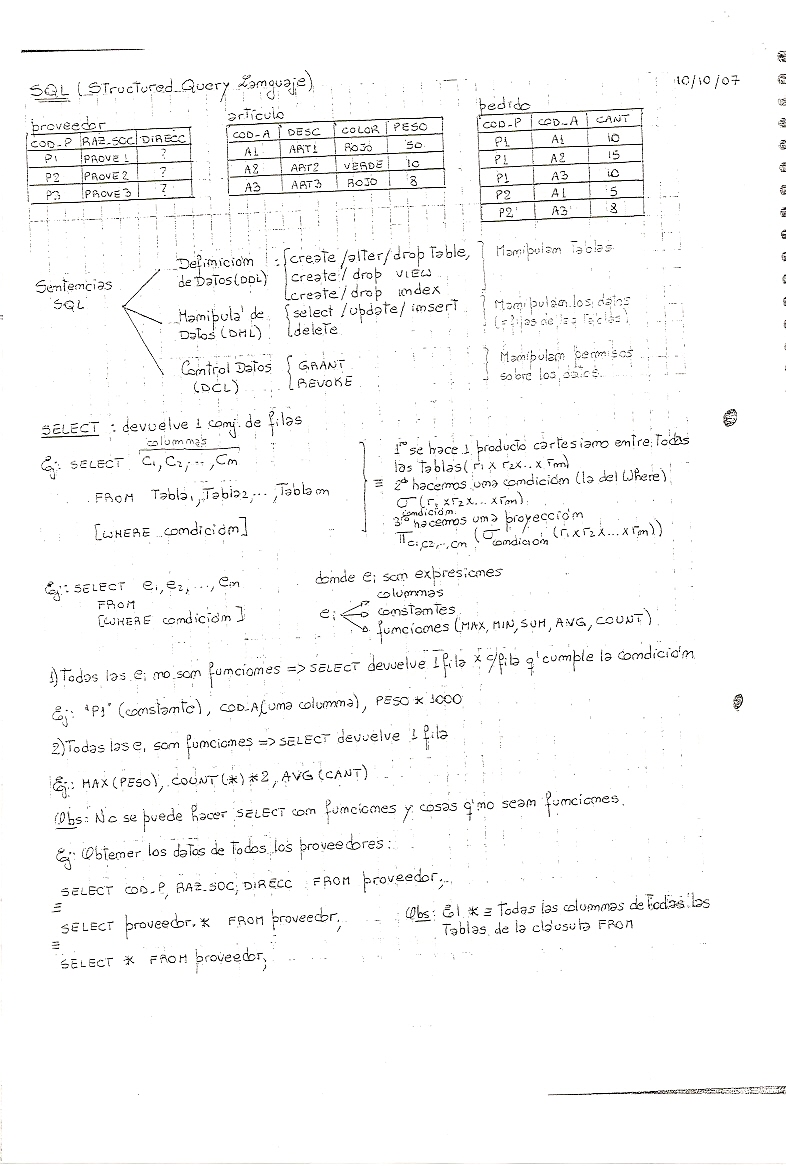 SQL (Structured Query Lenguaje) 10/10/07
proveedor
COD_P RAZ_SOC DIRECC
P1 PROVE 1 ?
P2 PROVE 2 ?
P3 PROVE 3 ?
artículo
COD_A DESC COLOR PESO
A1 ART1 ROJO 50
A2 ART2 VERDE 10
A3 ART3 ROJO 8
pedido
COD_P COD_A CANT
P1 A1 10
P1 A2 15
P1 A3 10
P2 A1 5
P2 A3 8
Sentencias SQL
Definición de Datos (DDL) : { create / alter / drop Table,
create / drop VIEW
create / drop index
} Manipulan Tablas
Manipula' de Datos (DML) { select / update / insert
delete
} Manipulan los datos
(filas de las tablas)
Control Datos (DCL) { GRANT
REVOKE
} Manipulan permisos
sobre los datos.
SELECT : devuelve 1 conj. de filas
columnas
Ej: SELECT C1, C2, .., Cn
FROM Tabla1, Tabla2, .., Tablam
[WHERE condición]
≡ 1º se hace 1 producto cartesiano entre todas
las tablas (r1 x r2 x .. x rm)
2º hacemos una condición (la del Where)
σ condición (r1 x r2 x ... x rm)
3º hacemos una proyección
Π c1, c2, .., cn (σ condición (r1 x r2 x ... x rm))
Ej: SELECT e1, e2, ..., en
FROM
[WHERE condición]
donde ei son expresiones
ei columnas
constantes
funciones (MAX, MIN, SUM, AVG, COUNT)
1) Todas las ei no son funciones => SELECT devuelve 1 fila x c/fila q' cumple la condición
Ej: "P1" (constante), COD_A (una columna), PESO * 1000
2) Todas las ei son funciones => SELECT devuelve 1 fila
Ej: MAX (PESO), COUNT (*) * 2, AVG (CANT)
Obs: No se puede hacer SELECT con funciones y cosas q' no sean funciones.
Ej: Obtener los datos de Todos los proveedores:
SELECT COD_P, RAZ_SOC, DIRECC FROM proveedor;
≡
SELECT proveedor.* FROM proveedor;
≡
SELECT * FROM proveedor;
Obs: El * ≡ Todas las columnas de todas las
Tablas de la cláusula FROM